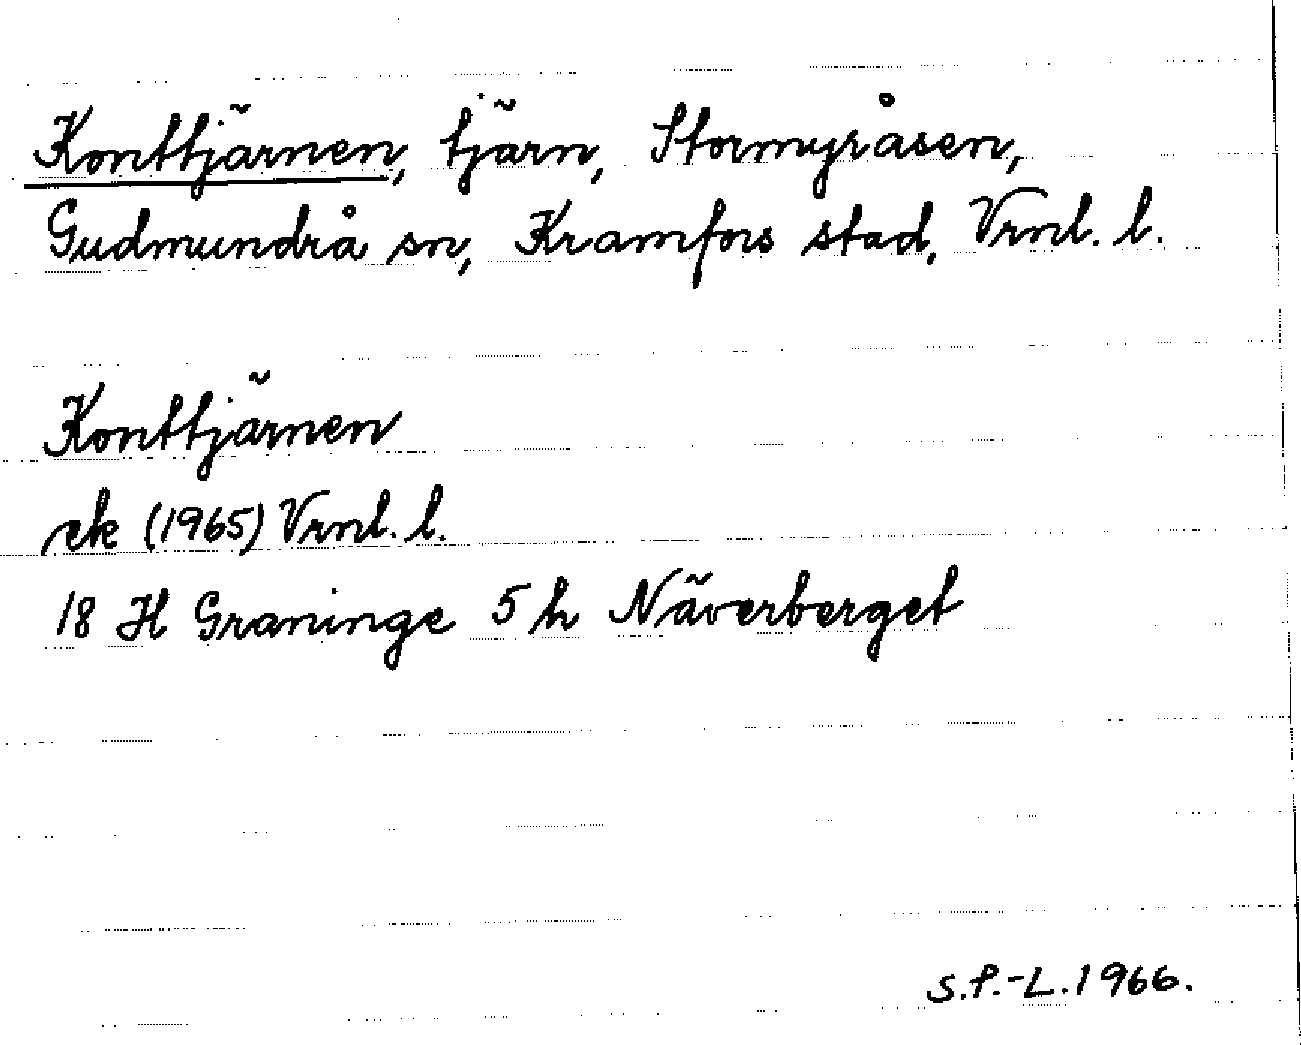 Konttjärnen, tjärn, Stormyråsen,
Gudmundrå sn, Kramfors stad, Vrnl. l.
Konttjärnen
ek (1965) Vrnl. l.
18 H Graninge 5 h Näverberget
S.P.-L. 1966.